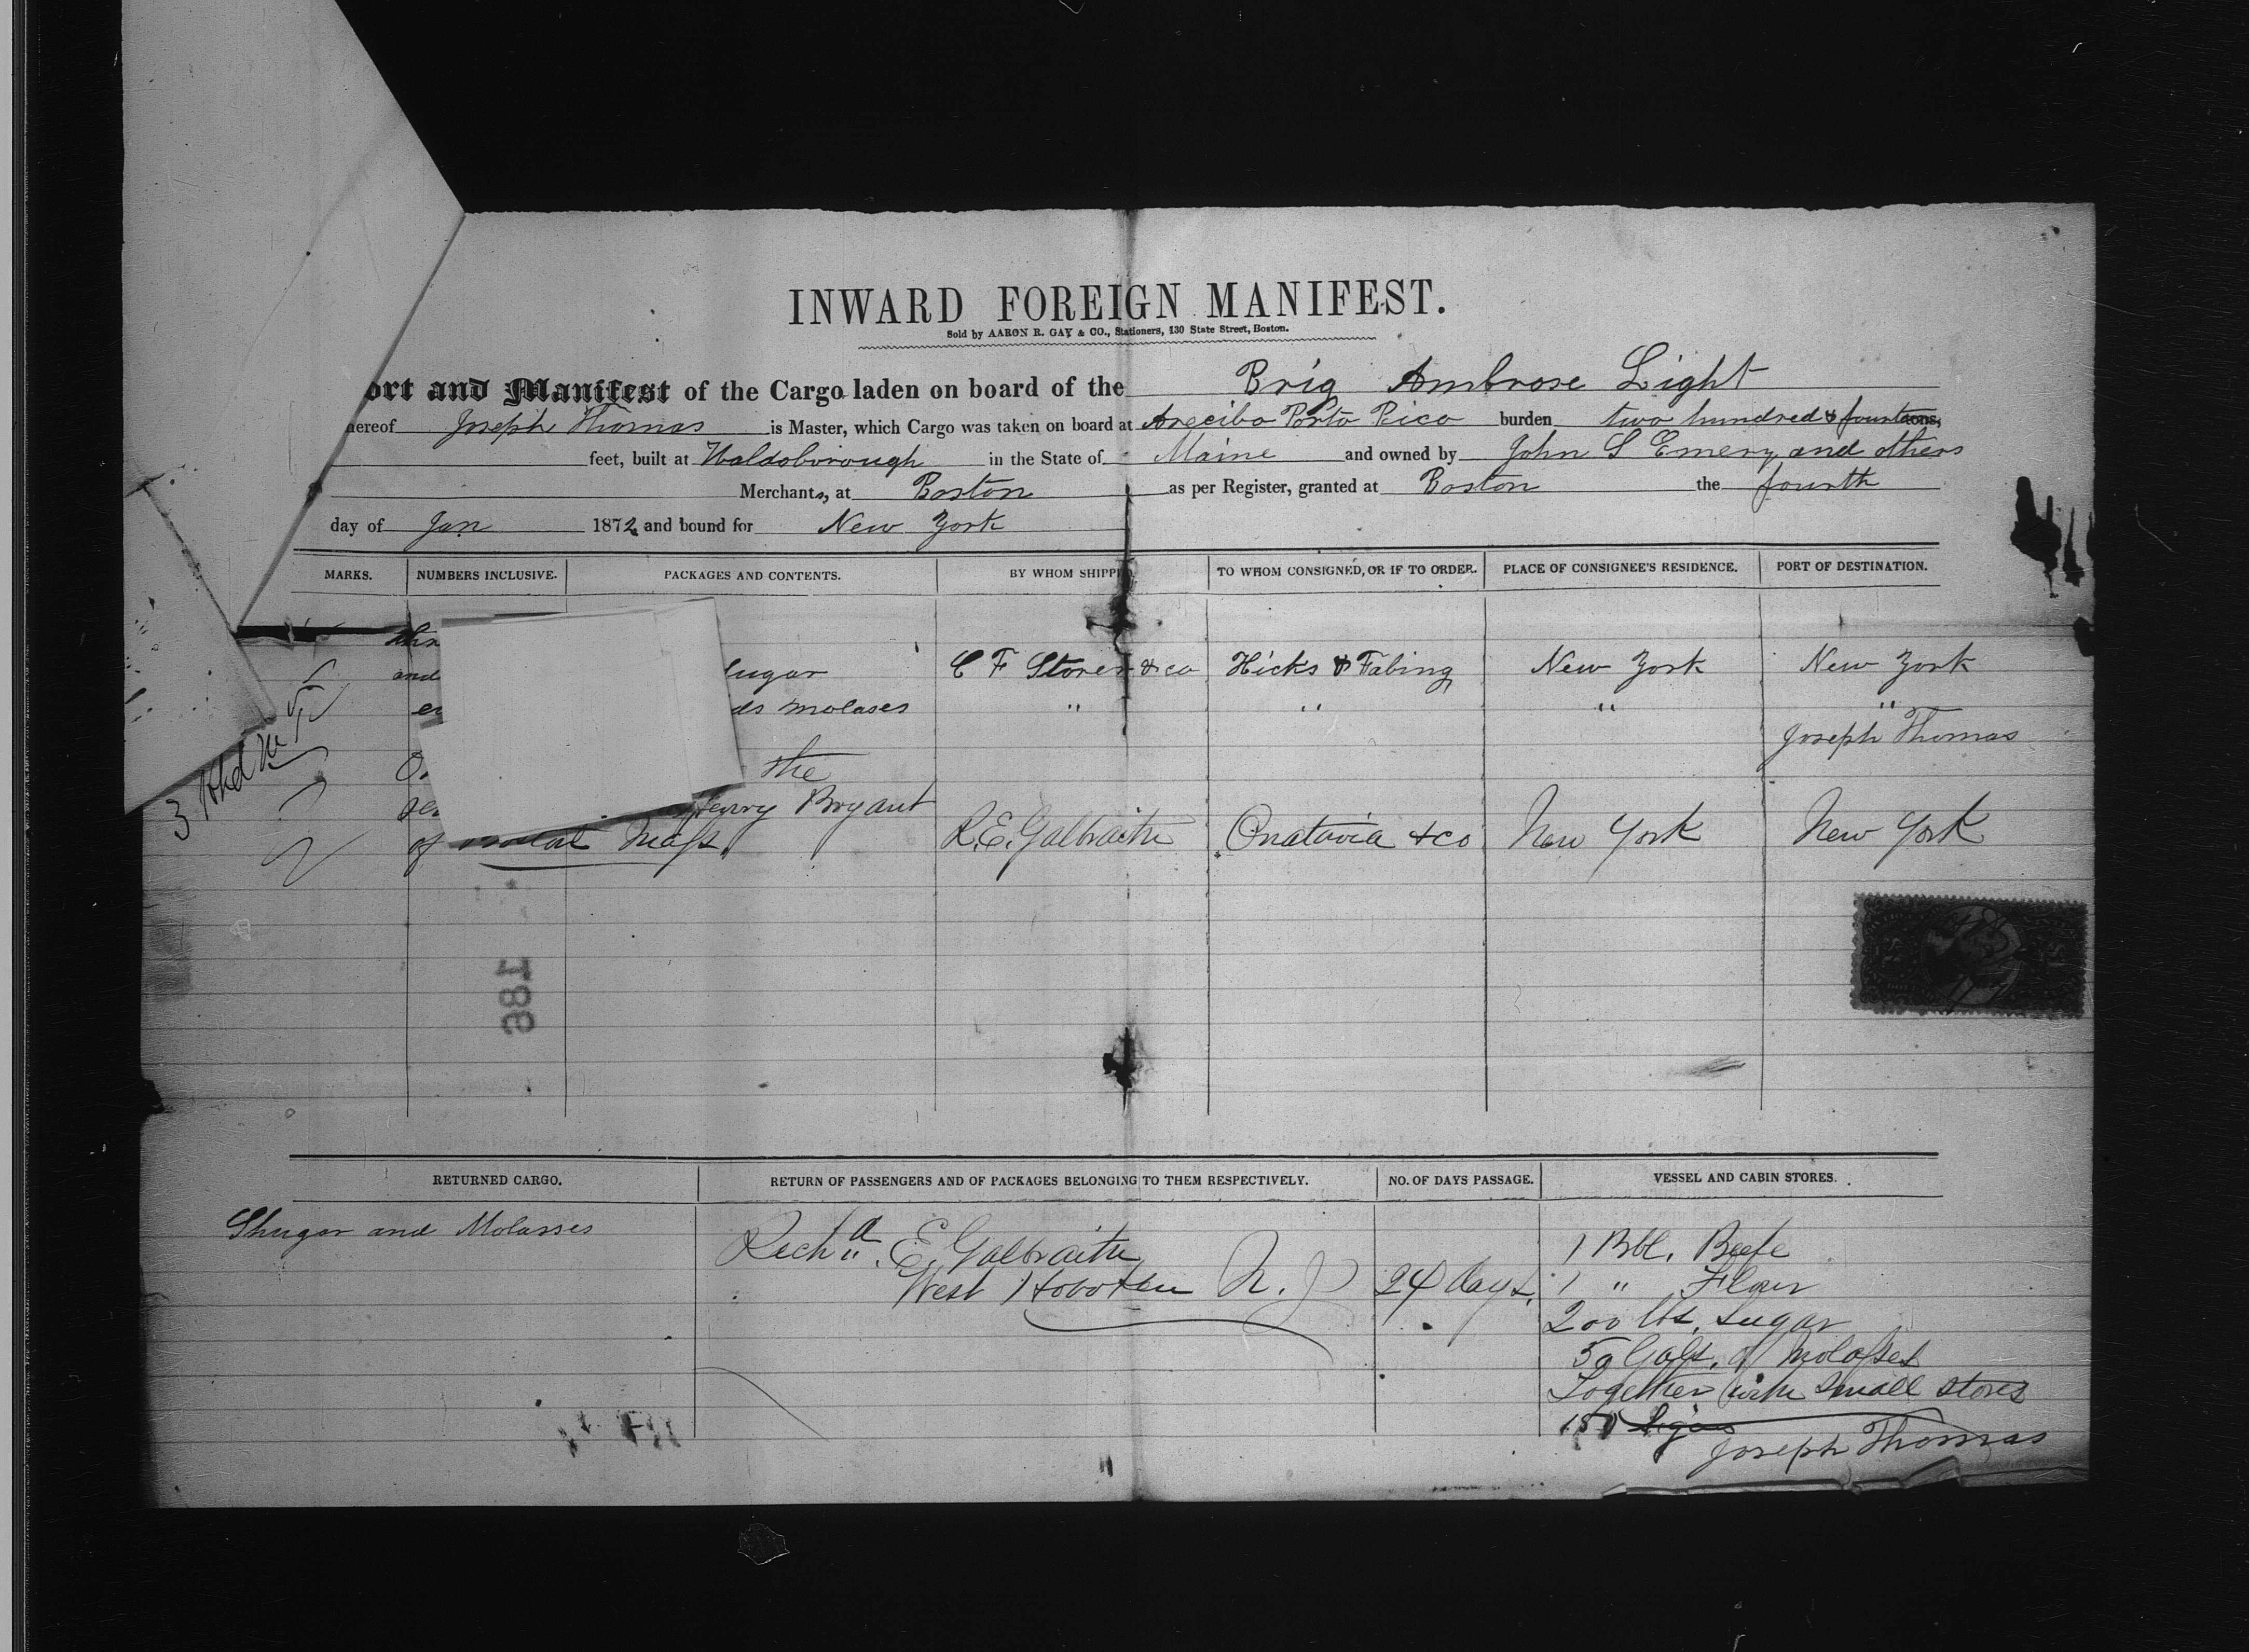 INWARD FOREIGN MANIFEST.
Sold by AARON R. GAY & CO., Stationers, 130 State Street, Boston.
ort and Manifest of the Cargo laden on board of the Brig Ambrose Light
hereof Joseph Thomas is Master, which Cargo was taken on board at Arecibo Porto Rico burden two hundred & fourteen tons,
feet, built at Waldoborough in the State of Maine and owned by John S Emery and others
Merchants, at Boston as per Register, granted at Boston the fourth
day of Jan 1872 and bound for New York
MARKS. NUMBERS INCLUSIVE. PACKAGES AND CONTENTS. BY WHOM SHIPPED. TO WHOM CONSIGNED, OR IF TO ORDER. PLACE OF CONSIGNEE'S RESIDENCE. PORT OF DESTINATION.
and sugar C F Storer & co Hicks & Fabing New York New York
ds molases " " " "
Joseph Thomas
the
Henry Bryant
of Mass. R. E. Galbraith & co New York New York
3 Hhd
186
RETURNED CARGO. RETURN OF PASSENGERS AND OF PACKAGES BELONGING TO THEM RESPECTIVELY. NO. OF DAYS PASSAGE. VESSEL AND CABIN STORES.
Shugar and Molasses
Rich'd. E. Galbraith
West Hoboken N. J
24 days.
1 Bbl. Beefe
1 " Flour
200 lbs. Sugar
50 Gals. of Molasses
Together with small stores
150
Joseph Thomas